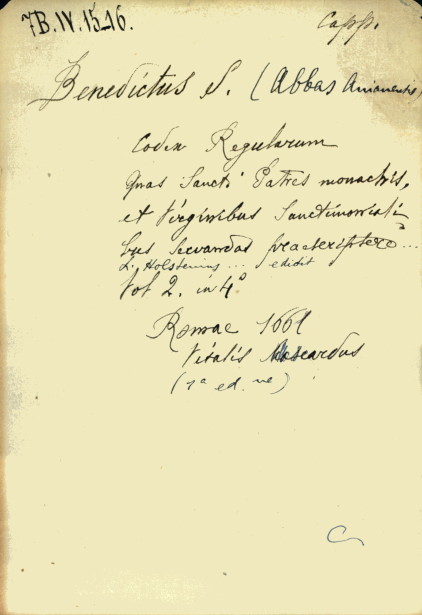 7B.IV.15-16.
Capp.
Benedictus S. (Abbas Anianensis)
Codex Regularum
quas Sancti Patres monachis,
et Virginibus Sanctimoniali
bus servandas praescripsere ...
L. Holstenius ... edidit
Vol 2. in 4°
Romae 1661
Vitalis Mascardus
(1ª ed. ne)
C